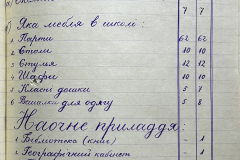 7 7
г) Яка мебля в школі:
1 Парти 62 62
2 Столи 10 10
3 Стулля 12 12
4 Шафи 10 10
5 Класні дошки 5 7
6 Вішалки для одягу 5 8
Наочне приладдя:
1 Бібліотека (книг) - 1
2 Географічний кабінет - 1